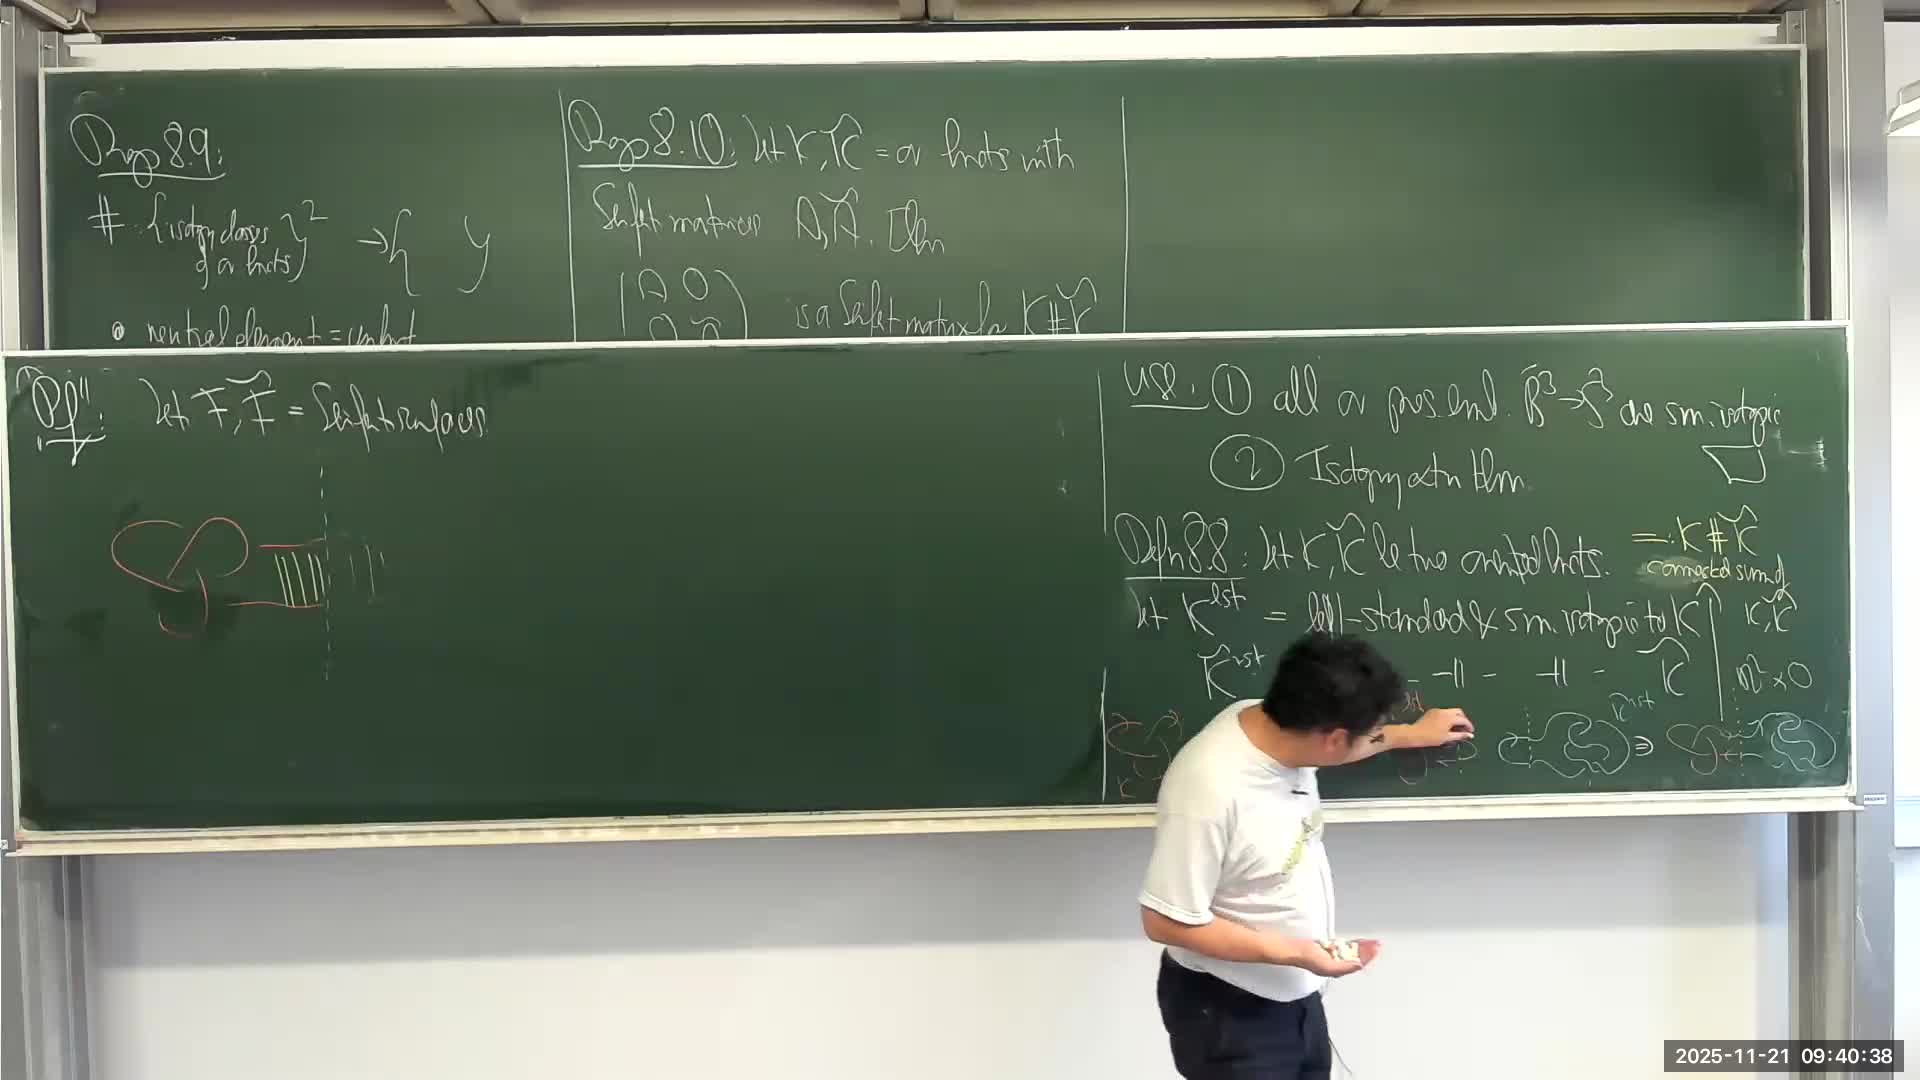 Prop 8.9:
# {isotopy classes of or knots}² → { }
• neutral element = unknot
Prop 8.10: Let K, K̃ = or knots with
Seifert matrices A, Ã. Then
(A 0
0 Ã) is a Seifert matrix for K # K̃
"Pf": Let F, F̃ = Seifert surfaces
Use: ① all or pres. emb. B̄³ → S³ are sm. isotopic
② Isotopy extn thm
Defn 8.8: Let K, K̃ be two oriented knots.
=: K # K̃
connected sum of
K, K̃
Let K^lst = left-standard & sm. isotopic to K
K̃^rst - 11 - 11 - K̃
ℝ² × 0
K̃^rst
K
2025-11-21 09:40:38